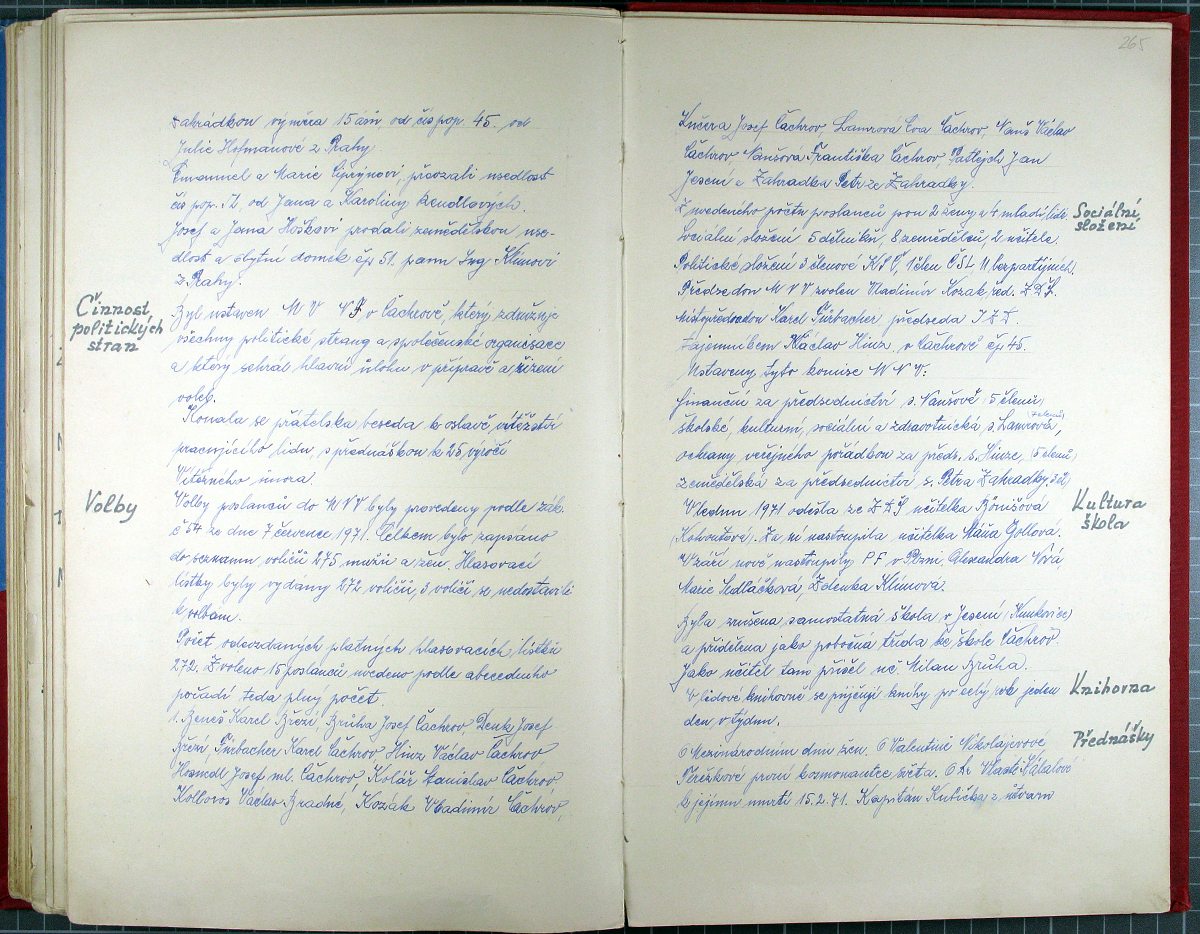 zahrádkou výměra 15 árů, od čís pop. 45. od
Julie Hofmanove z Prahy.
Emanuel a Marie převzali usedlost
čís pop. 52. od Jana a Karoliny Kendlových.
Josef a Jana Hoškovi prodali zemědělskou use-
dlost a obytní domek čp 51. panu Ing Klímovi
z Prahy.
Činnost
politických
stran
Byl ustaven M V N F v Čachrově, který združuje
všechny politické strany a společenské organizace
a který sehrál hlavní úlohu v přípravě a řízení
voleb.
Konala se přátelska beseda k oslavě vítězství
pracujícího lidu, s přednáškou k 25 výročí
Vítězného února.
Volby
Volby poslanců do M N V byly provedeny podle zák.
č 54 ze dne 7 července 1971. Celkem bylo zapsáno
do seznamu voličů 275 mužů a žen. Hlasovací
lístky byly vydány 272 voličů, 3 voliči se nedostavili
k volbam.
Počet odevzdaných platných hlasovacích lístků
272. Zvoleno 15 poslanců uvedeno podle abecedního
pořadí teda plný počet.
1. Beneš Karel Březí, Brůha Josef Čachrov, Denk Josef
Březí, Fürbacher Karel Čachrov, Hinz Václav Čachrov
Hosnedl Josef ml. Čachrov, Kolář Stanislav Čachrov
Václav Bradné, Kozák Vladimír Čachrov,
265
Kučera Josef Čachrov, Lamrova Eva Čachrov, Vaněš Václav
Čachrov, Vaňšová Františka Čachrov Jan
Jesení a Zahradka Petr ze Zahradky.
Sociální
složení
Z uvedeného počtu poslanců jsou 2 ženy a 4 mladí lidi
Sociální složení 5 dělníků, 8 zemědělců, 2 učitele.
Politické složení 3 členové KSČ, 1 člen ČSL 11 bezpartijních.
Předsedou M N V zvolen Vladimír Kozak řed. Z D Š.
místopředsedou Karel Fürbacher předseda J Z D.
tajemníkem Václav Hinz, v Čachrově čp 45.
Ustaveny tyto komise M N V:
finanční za předsednictví s. Vaňšové (5 členů)
školské, kulturní, sociální a zdravotnická s. Lamrová, (7 členů)
ochrany veřejného pořádkou za předs. s. Hinze, (5 členů)
zemědělská za předsednictví s. Petra Zahradky.
Kultura
škola
V lednu 1971 odešla ze Z D Š učitelka
(Kohoutová). Za ni nastoupila učitelka Máňa Gollová.
V září nově nastoupily P F v Plzni Alexandra
Marie Sedláčková, Zdenka Klímová.
Byla zrušena samostatná škola v Jesení (Kunkovice)
a přidělena jako pobočná třída ke škole Čachrov.
Jako učitel tam přišel uč. Milan Brůha.
Knihovna
V lidové knihovně se půjčují knihy po celý rok jeden
den v týdnu.
Přednášky
O Mezinárodním dnu žen. O Valentině Nikolajevove
Těreškové první kosmonautce světa. O Dr Vlastě Kálalové
k jejímu umrtí 15.2.71. Kapitán Kubička z útvaru